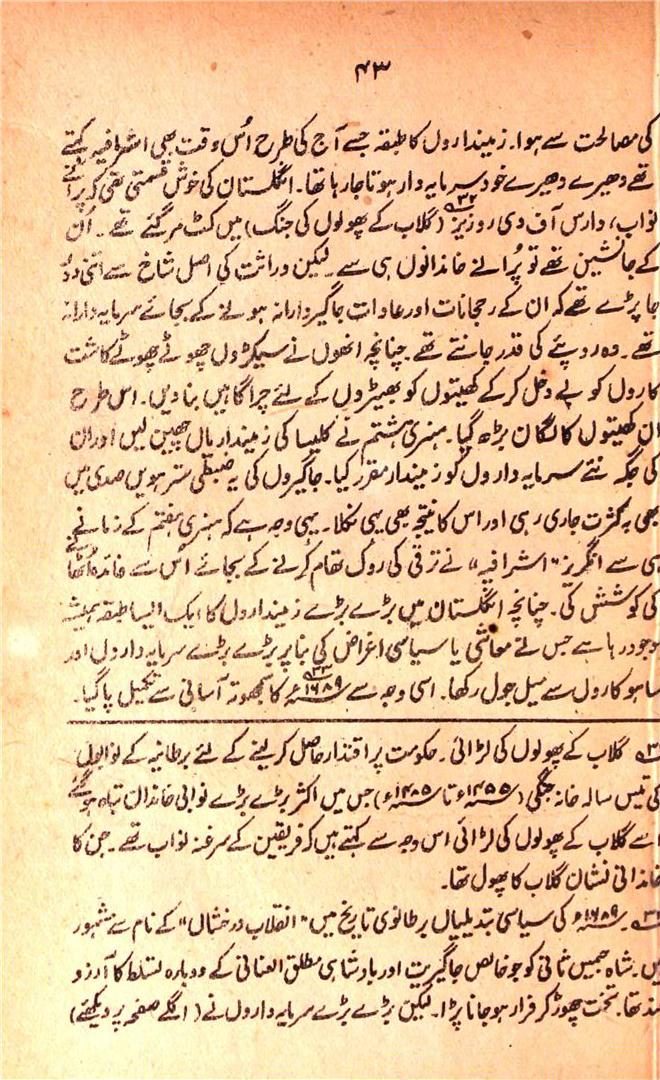 ۴۳
کی مصالحت سے ہوا۔ زمینداروں کا طبقہ جسے آج کی طرح اُس وقت بھی اشرافیہ کہتے
تھے دھیرے دھیرے خود سرمایہ دار ہوتا جا رہا تھا۔ انگلستان کی خوش قسمتی تھی کہ پرانے
نواب، وارس آف دی روزیز ۳۲ (گلاب کے پھولوں کی جنگ) میں کٹ مر گئے تھے۔ اُن
کے جانشین تھے تو پُرانے خاندانوں ہی سے۔ لیکن وراثت کی اصل شاخ سے اتنی دور
جا پڑے تھے کہ ان کے رجحانات اور عادات جاگیردارانہ ہونے کے بجائے سرمایہ دارانہ
تھے۔ وہ روپئے کی قدر جانتے تھے۔ چنانچہ انھوں نے سیکڑوں چھوٹے چھوٹے کاشت
کاروں کو بے دخل کر کے کھیتوں کو بھیڑوں کے لئے چراگاہیں بنا دیں۔ اس طرح
ان کھیتوں کا لگان بڑھ گیا۔ ہنری ہشتم نے کلیسا کی زمینداریاں چھین لیں اور ان
کی جگہ نئے سرمایہ داروں کو زمیندار مقرر کیا۔ جاگیروں کی یہ ضبطی سترہویں صدی میں
بھی بہ کثرت جاری رہی اور اس کا نتیجہ بھی یہی نکلا۔ یہی وجہ ہے کہ ہنری ہفتم کے زمانے
ہی سے انگریز "اشرافیہ" نے ترقی کی روک تھام کرنے کے بجائے اُس سے فائدہ اُٹھانے
کی کوشش کی۔ چنانچہ انگلستان میں بڑے بڑے زمینداروں کا ایک ایسا طبقہ ہمیشہ
موجود رہا ہے جس نے معاشی یا سیاسی اغراض کی بنا پر بڑے بڑے سرمایہ داروں اور
ساہوکاروں سے میل جول رکھا۔ اسی وجہ سے ۱۶۸۹ء ۳۳ کا سمجھوتہ آسانی سے تکمیل پا گیا۔
گلاب کے پھولوں کی لڑائی۔ حکومت پر اقتدار حاصل کرنے کے لئے برطانیہ کے نوابوں
کی تیس سالہ خانہ جنگی (۱۴۵۵ء تا ۱۴۸۵ء) جس میں اکثر بڑے بڑے نوابی خاندان تباہ ہو گئے
اسے گلاب کے پھولوں کی لڑائی اس وجہ سے کہتے ہیں کہ فریقین کے سرغنہ نواب تھے۔ جن کا
خاندانی نشان گلاب کا پھول تھا۔
۱۶۸۹ء کی سیاسی تبدیلیاں برطانوی تاریخ میں "انقلاب درخشاں" کے نام سے مشہور
ہیں۔ شاہ جیمس ثانی کو جو خالص جاگیریت اور بادشاہی مطلق العنانی کے دوبارہ تسلط کا آرزو
مند تھا۔ تخت چھوڑ کر فرار ہو جانا پڑا۔ لیکن بڑے بڑے سرمایہ داروں نے (اگلے صفحہ پر دیکھئے)